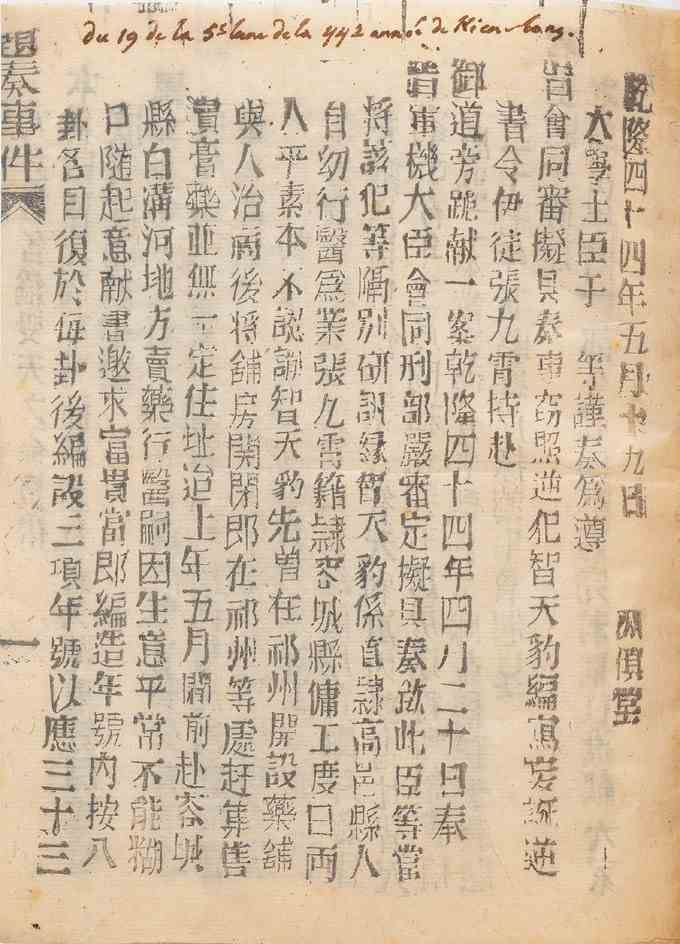 du 19 de la 5e lune de la 44e année de Kien-long.
乾隆四十四年五月十九日 公慎堂
大學士臣于 等謹奏爲遵
旨會同審擬具奏事竊照逆犯智天豹編寫妄誕逆
書令伊徒張九霄持赴
御道旁跪献一案乾隆四十四年四月二十日奉
旨軍機大臣會同刑部嚴審定擬具奏欽此臣等當
將該犯等隔別研訊緣智天豹係直隸高邑縣人
自幼行醫爲業張九霄籍隸容城縣傭工度日兩
人平素本不認識智天豹先曾在祁州開設藥舖
與人治病後將舖房関閉即在祁州等處赶集售
賣膏藥並無一定住址迨上年五月間前赴容城
縣白溝河地方賣藥行醫嗣因生意平常不能糊
口隨起意献書邀求富貴當即編造年號内按八
卦各目復於每卦後編設三項年號以應三十三
題奏事件 一